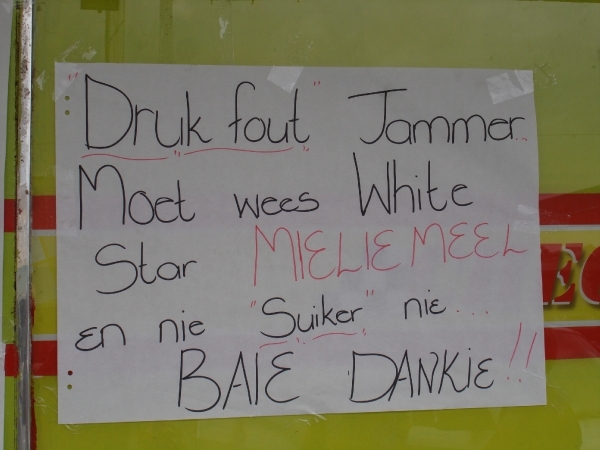 "Druk fout" Jammer..
Moet wees White
Star MIELIEMEEL
en nie "Suiker" nie...
BAIE DANKIE!!